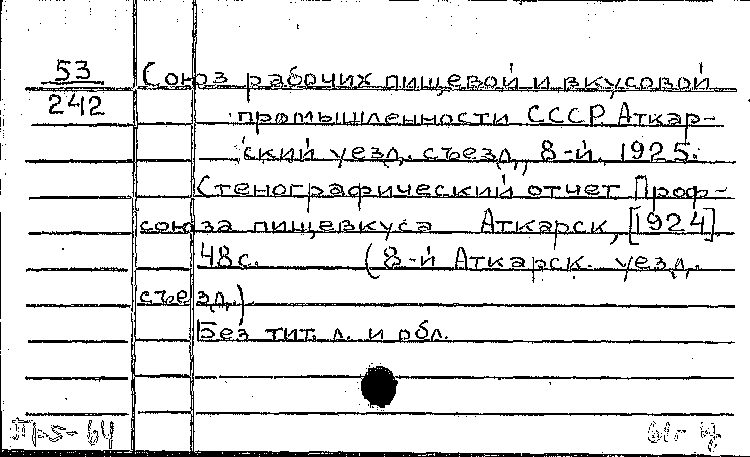 53 Союз рабочих пищевой и вкусовой
242
промышленности СССР Аткар-
ский уезд. съезд, 8-й, 1925.
Стенографический отчет Проф-
союза пищевкуса Аткарск, [1924].
48с. (8-й Аткарск. уезд.
съезд.)
Без тит. л. и обл.